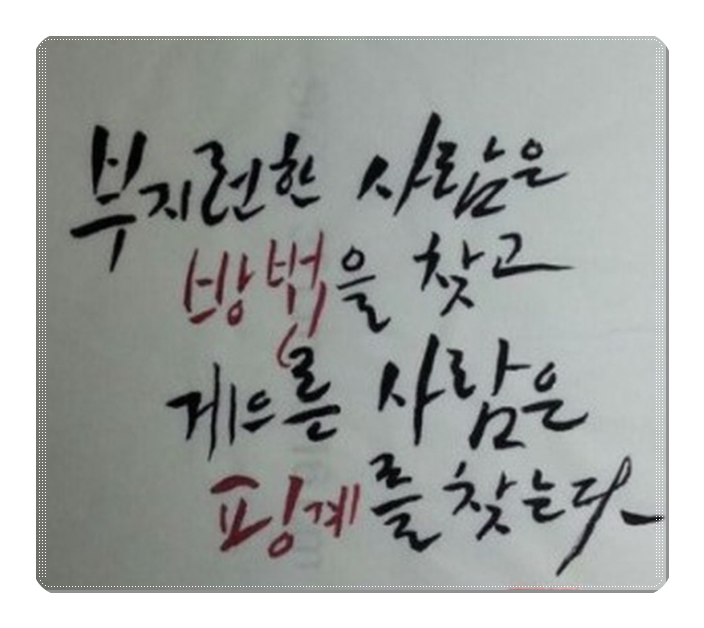 부지런한 사람은
방법을 찾고
게으른 사람은
핑계를 찾는다